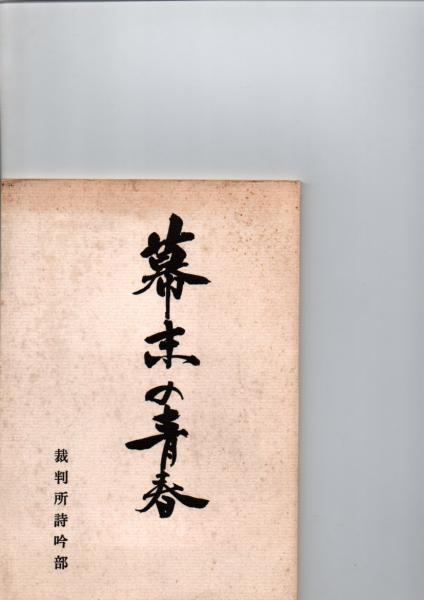 幕末の青春
裁判所詩吟部